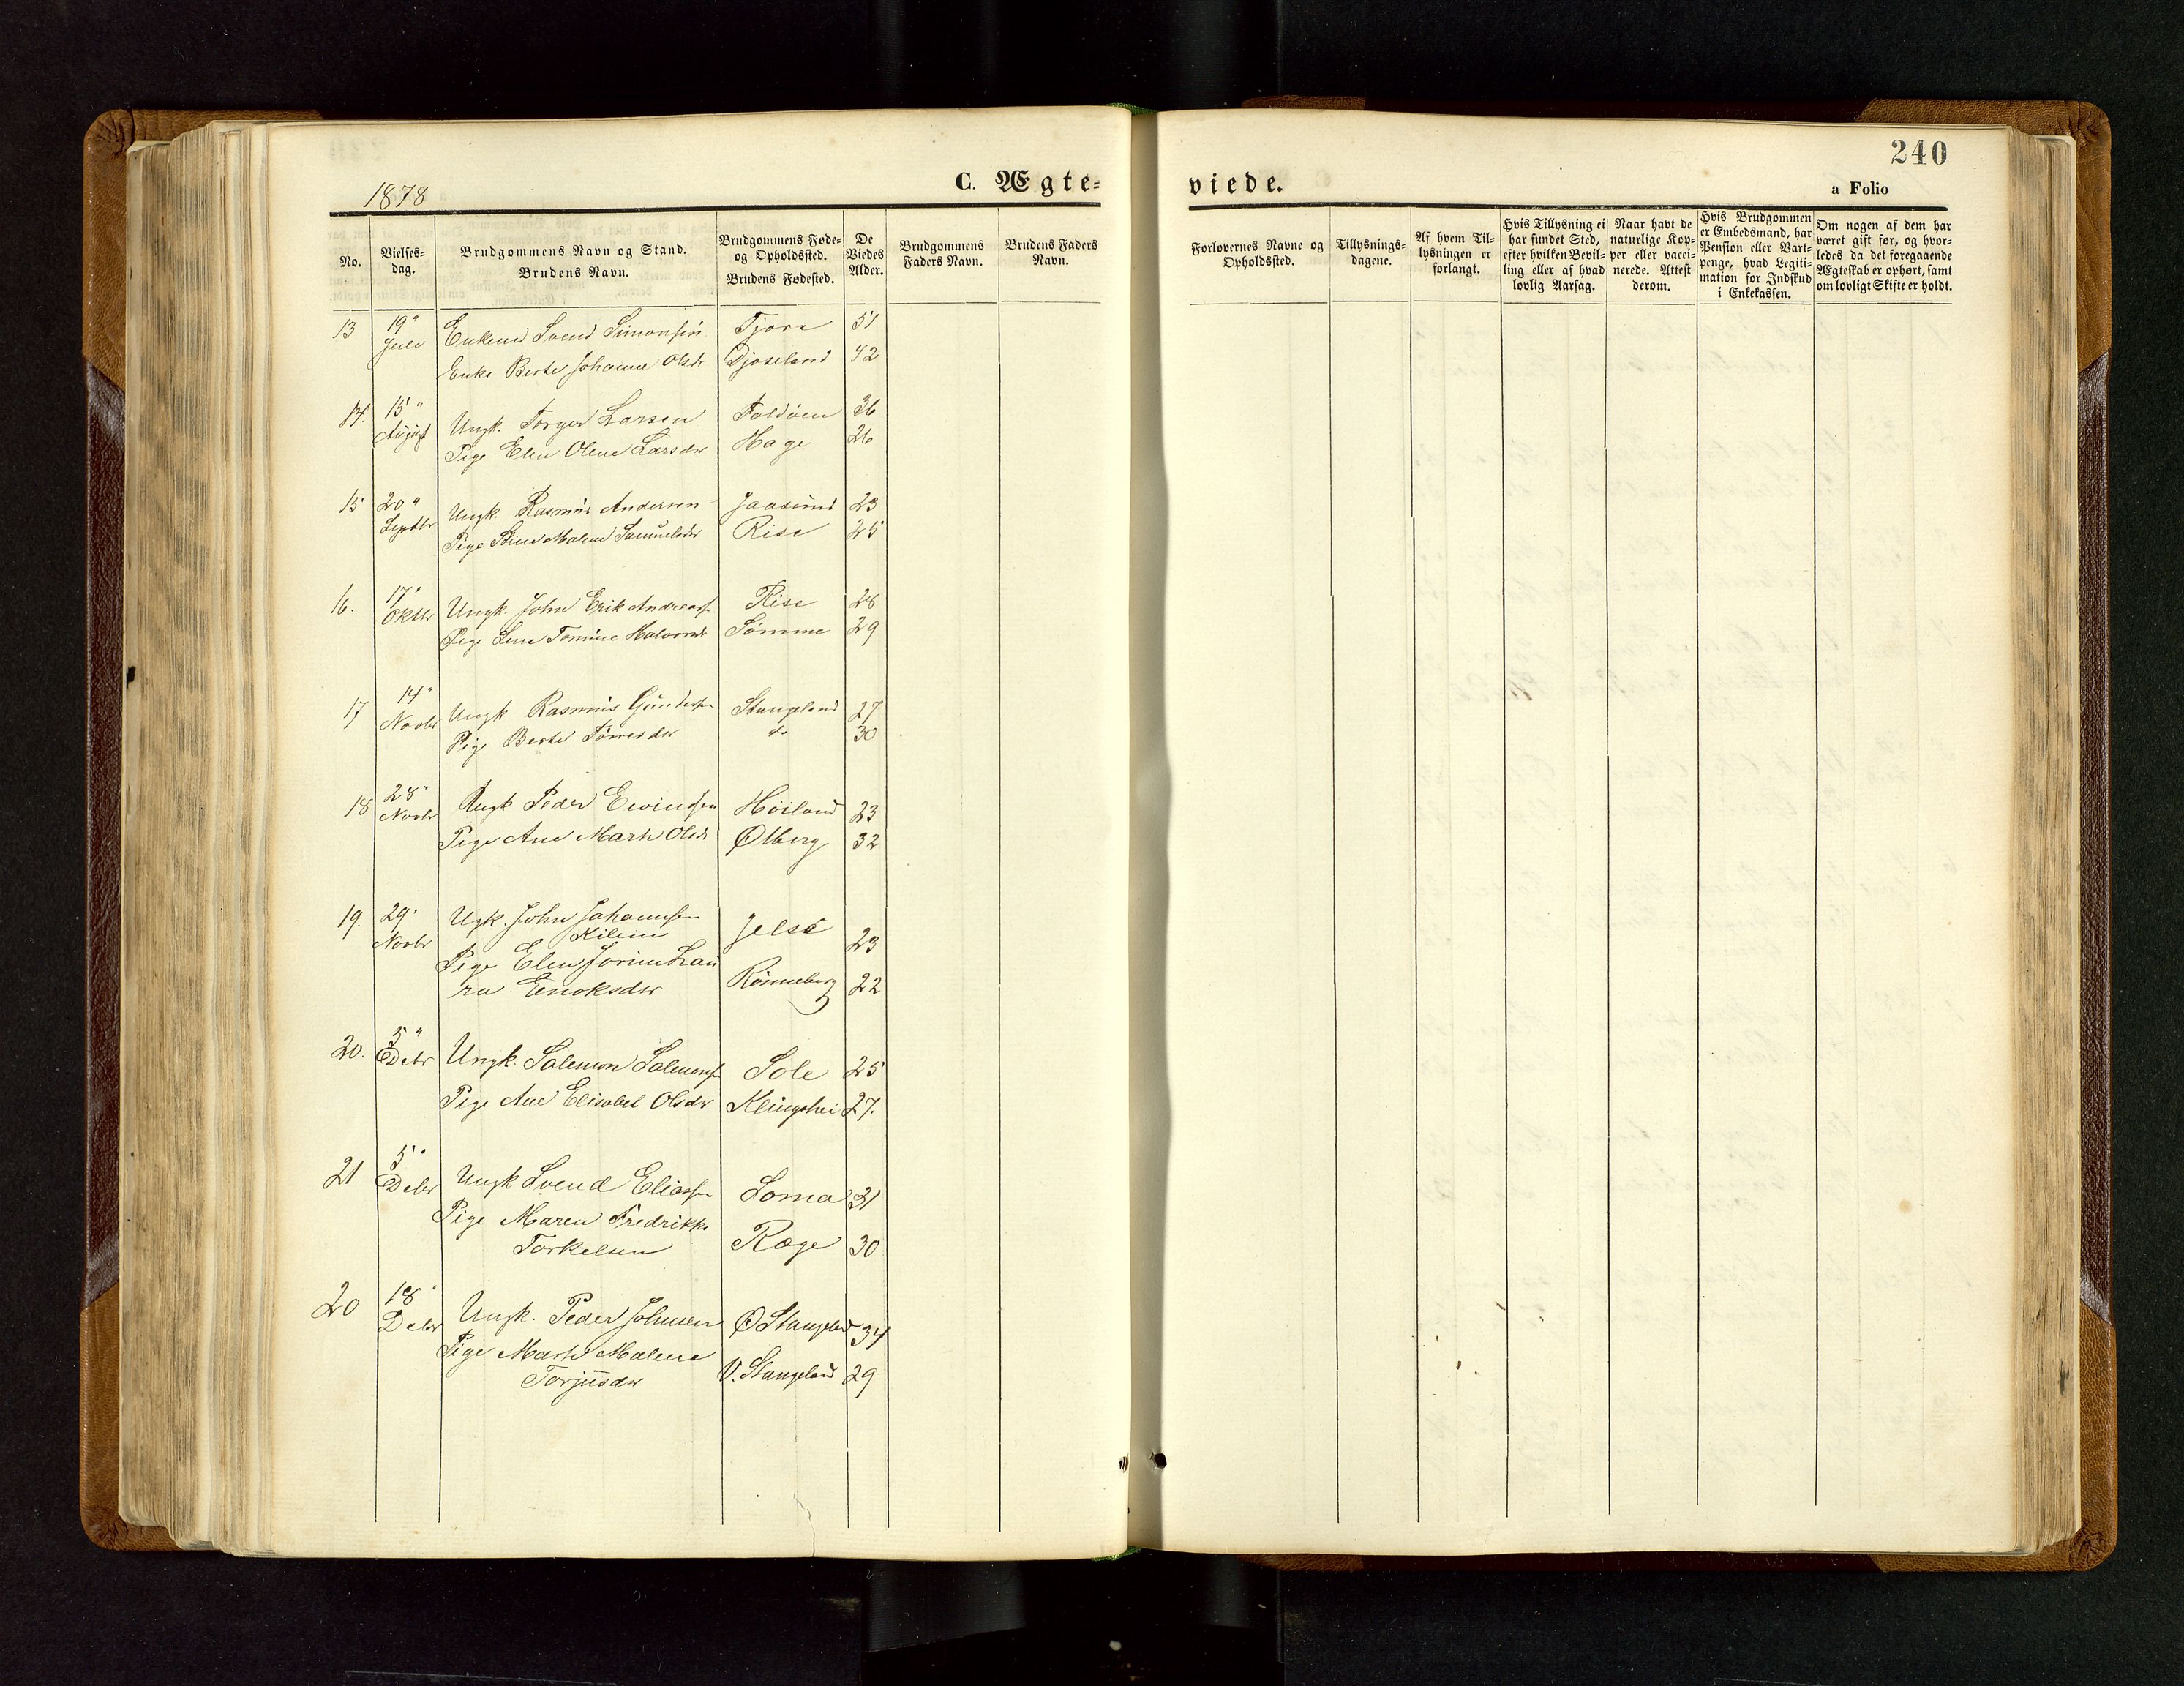 240
1878
C. Ægte-
viede.
a Folio
No.
Vielses-
dag.
Brudgommens Navn og Stand.
Brudens Navn.
Brudgommens Føde-
og Opholdssted.
Brudens Fødested.
De
Viedes
Alder.
Brudgommens
Faders Navn.
Brudens Faders
Navn.
Forlovernes Navne og
Opholdssted.
Tillysnings-
dagene.
Af hvem Til-
lysningen er
forlangt.
Hvis Tillysning ei
har fundet Sted,
efter hvilken Bevil-
ling eller af hvad
lovlig Aarsag.
Naar havt de
naturlige Kop-
per eller vacci-
nerede. Attest
derom.
Hvis Brudgommen
er Embedsmand, har
Pension eller Vart-
penge, hvad Legiti-
mation for Indskud
i Enkekassen.
Om nogen af dem har
været gift før, og hvor-
ledes da det foregaaende
Ægteskab er ophørt, samt
om lovligt Skifte er holdt.
13 19" Enkem Svend Simonsen Tjora 51
Juli
Enke Berte Johanne Olsdr Djoseland 42
14. 15" Ungk. Torger Larsen Foldöen 36
August
Pige Elen Olene Larsdr Hage 26
15 20" Ungk. Rasmus Andersen Jaasund 23
Septbr
Pige Stine Malene Samuelsdr Rise 25
16. 17" Ungk. John Erik Andreass Rise 28
Oktbr
Pige Lene Tomine Halvorsdr Sömme 29
17 14" Ungk Rasmus Gundersen Stangeland 27
Novbr
Pige Berte Törresdr do 30
18 28" Ungk Peder Eivindsen Höiland 23
Novbr
Pige Ane Marte Olsdr Ølberg 32
19. 29" Ugk. John Johannsen Jelse 23
Novbr
Kilein
Pige Elen Jorine Lau
ra Enoksdr Rönneberg 22
20. 5" Ungk. Salemon Salemonsen Sole 25
Debr
Pige Ane Elisabet Olsdr Klingshei 27.
21 5" Ungk Svend Eliassen Soma 31
Debr
Pige Maren Fredrikke
Torkelsen Rege 30
20 18" Ungk. Peder Johnsen Ø Stangeland 34
Debr
Pige Marte Malene
Torjusdr V. Stangeland 29